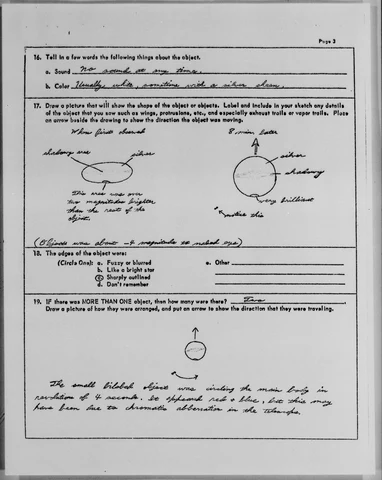 Page 3
16. Tell in a few words the following things about the object.
a. Sound No sound at any time.
b. Color Usually white, sometimes with a silver sheen.
17. Draw a picture that will show the shape of the object or objects. Label and include in your sketch any details
of the object that you saw such as wings, protrusions, etc., and especially exhaust trails or vapor trails. Place
an arrow beside the drawing to show the direction the object was moving.
When first observed
8 min. later
shadowy area
silver
silver
shadowy
This area was over
two magnitudes brighter
than the rest of the
object.
very brilliant
notice this
(Objects was about -4 magnitude to naked eye)
18. The edges of the object were:
(Circle One): a. Fuzzy or blurred
b. Like a bright star
c. Sharply outlined
d. Don't remember
e. Other
19. IF there was MORE THAN ONE object, then how many were there? Two
Draw a picture of how they were arranged, and put an arrow to show the direction that they were traveling.
The small bilobed object was circling the main body in
revolution of 4 seconds. It appeared red & blue, but this may
have been due to chromatic abberation in the telescope.